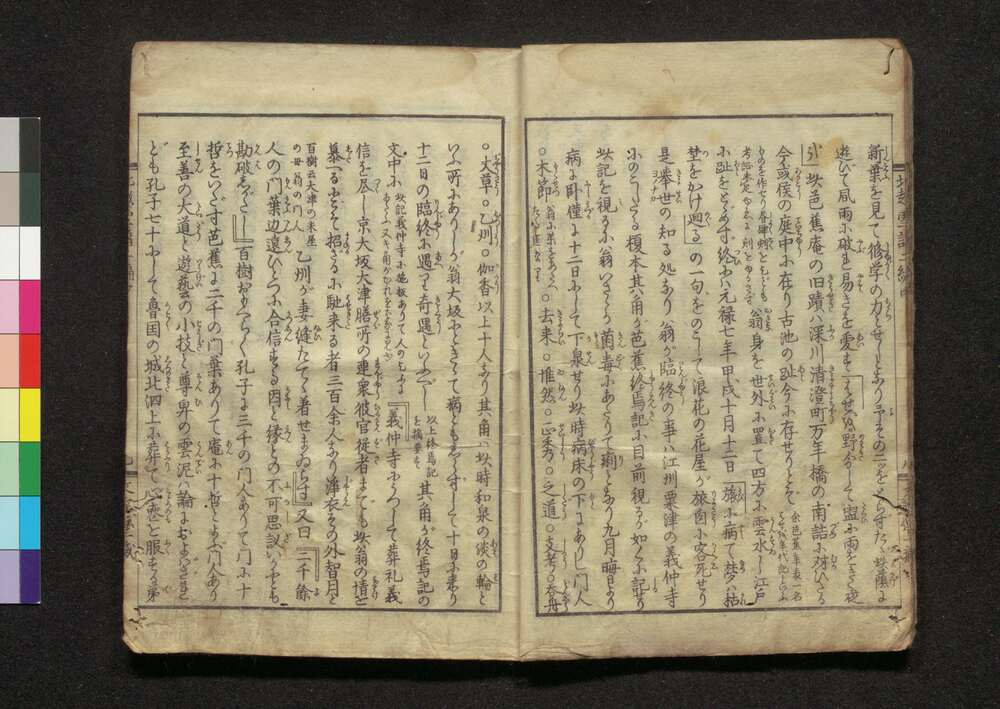 新葉を見て修学の力とせしとありそその二ツをとらずたゝ其陰に
遊びて風雨に破れ易きを愛す はせを野分して盥に雨をきく夜
此芭蕉庵の旧蹟ハ深川清澄町万年橋の南詰に対ひたる
今或侯の庭中に在り古池の趾今に存せりとぞ
翁身を世外に置て四方に雲水し江戸
に趾をとゞめず終に元禄七年甲戌十月十二日 旅に病て夢ハ枯
埜をかけ廻る の一句をのこして浪花の花屋が旅囱に客死せり
是挙世の知る処なり翁が臨終の事ハ江州粟津の義仲寺
にのこしたる榎本其角が芭蕉終焉記に目前視るが如くに記せり
此記を視るに翁いさゝか菌毒にあたりて痢となり九月晦日より
病に卧僅に十二日にして下泉せり此時病床の下にありし門人
○木節 ○去来○惟然○正秀○之道○支考○呑舟
○丈草○乙州○伽香以上十人なり其角ハ此時和泉の淡の輪と
いふ所にありしが翁大坂にときゝて病ともしらずして十日に来り
十二日の臨終に遇り奇遇といふべし 以上終焉記を摘要す 其角が終焉記の
文中に 義仲寺にうつして葬礼義
信を尽し京大坂大津膳所の連衆被官従者までも此翁の情を
慕へるにこそ招ざるに馳来る者三百余人なり浄衣その外智月と
百樹云大津の米屋の母翁の門人 乙州が妻縫たてゝ着せまゐらす 又曰 二千余
人の門葉辺遠ひとつに合信する因と縁との不可思議いかにとも
勘破しがたし 百樹おもへらく孔子に三千の門人ありて門に十
哲をいだす芭蕉に二千の門葉ありて庵に十哲とよぶ門人あり
至善の大道と遊藝の小技と尊卑の雲泥ハ論におよバざれ
とも孔子七十にして魯国の城北泗上に葬て心喪を服する弟